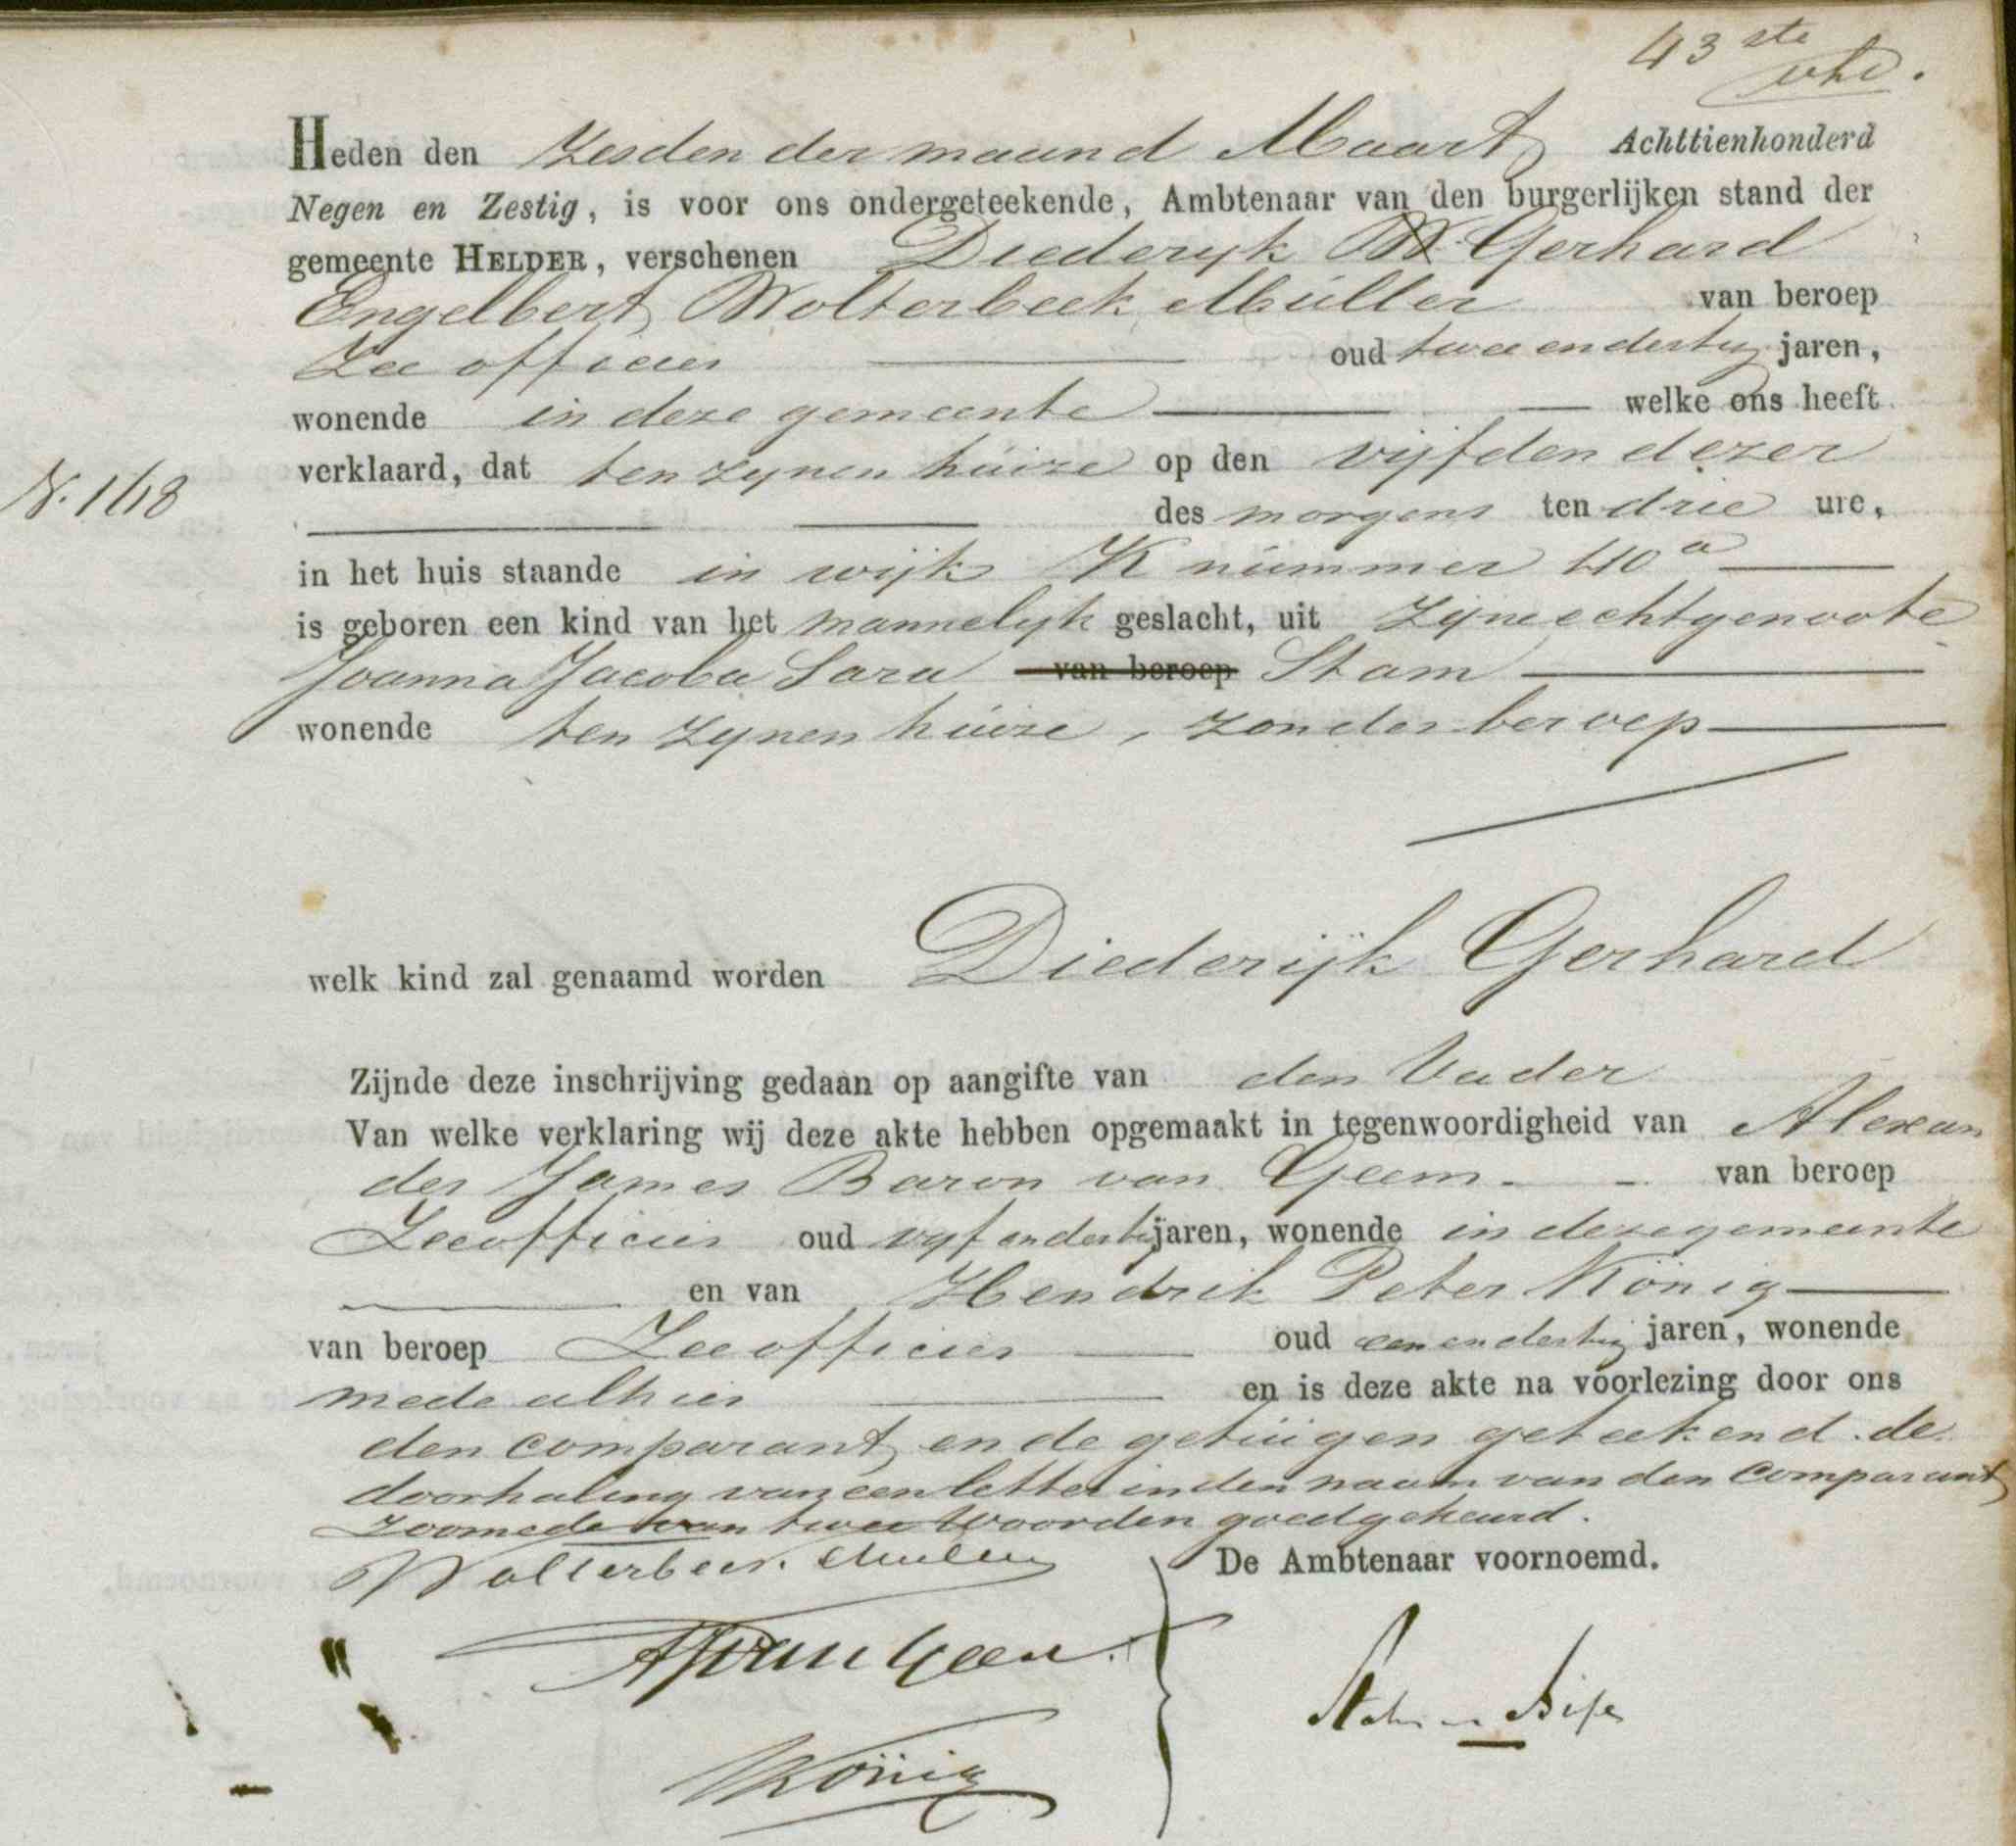 43ste
Heden den Zesden der maand Maart Achttienhonderd
Negen en Zestig, is voor ons ondergeteekende, Ambtenaar van den burgerlijken stand der
gemeente HELDER, verschenen Diederyk W Gerhard
Engelbert Wolterbeek Müller van beroep
Zee officier oud twee en dertig jaren,
wonende in deze gemeente welke ons heeft
verklaard, dat ten zynen huize op den vijfden dezer
N. 148
des morgens ten drie ure,
in het huis staande in wijk K nummer 40a
is geboren een kind van het mannelyk geslacht, uit Zijne echtgenoote
Joanna Jacoba Sara van beroep Stam
wonende ten zynen huize, zonder beroep
welk kind zal genaamd worden Diederijk Gerhard
Zijnde deze inschrijving gedaan op aangifte van den Vader
Van welke verklaring wij deze akte hebben opgemaakt in tegenwoordigheid van Alexan
der James Baron van Geem van beroep
Zeeofficier oud vyf en dertig jaren, wonende in deze gemeente
en van Hendrik Peter König
van beroep Zeeofficier oud een en dertig jaren, wonende
mede alhier en is deze akte na voorlezing door ons
den comparant en de getuigen geteekend. de
doorhaling van een letter in den naam van den Comparant
zoomede van twee woorden goedgekeurd.
Wolterbeek Muller De Ambtenaar voornoemd.
AJ van Geen.
König